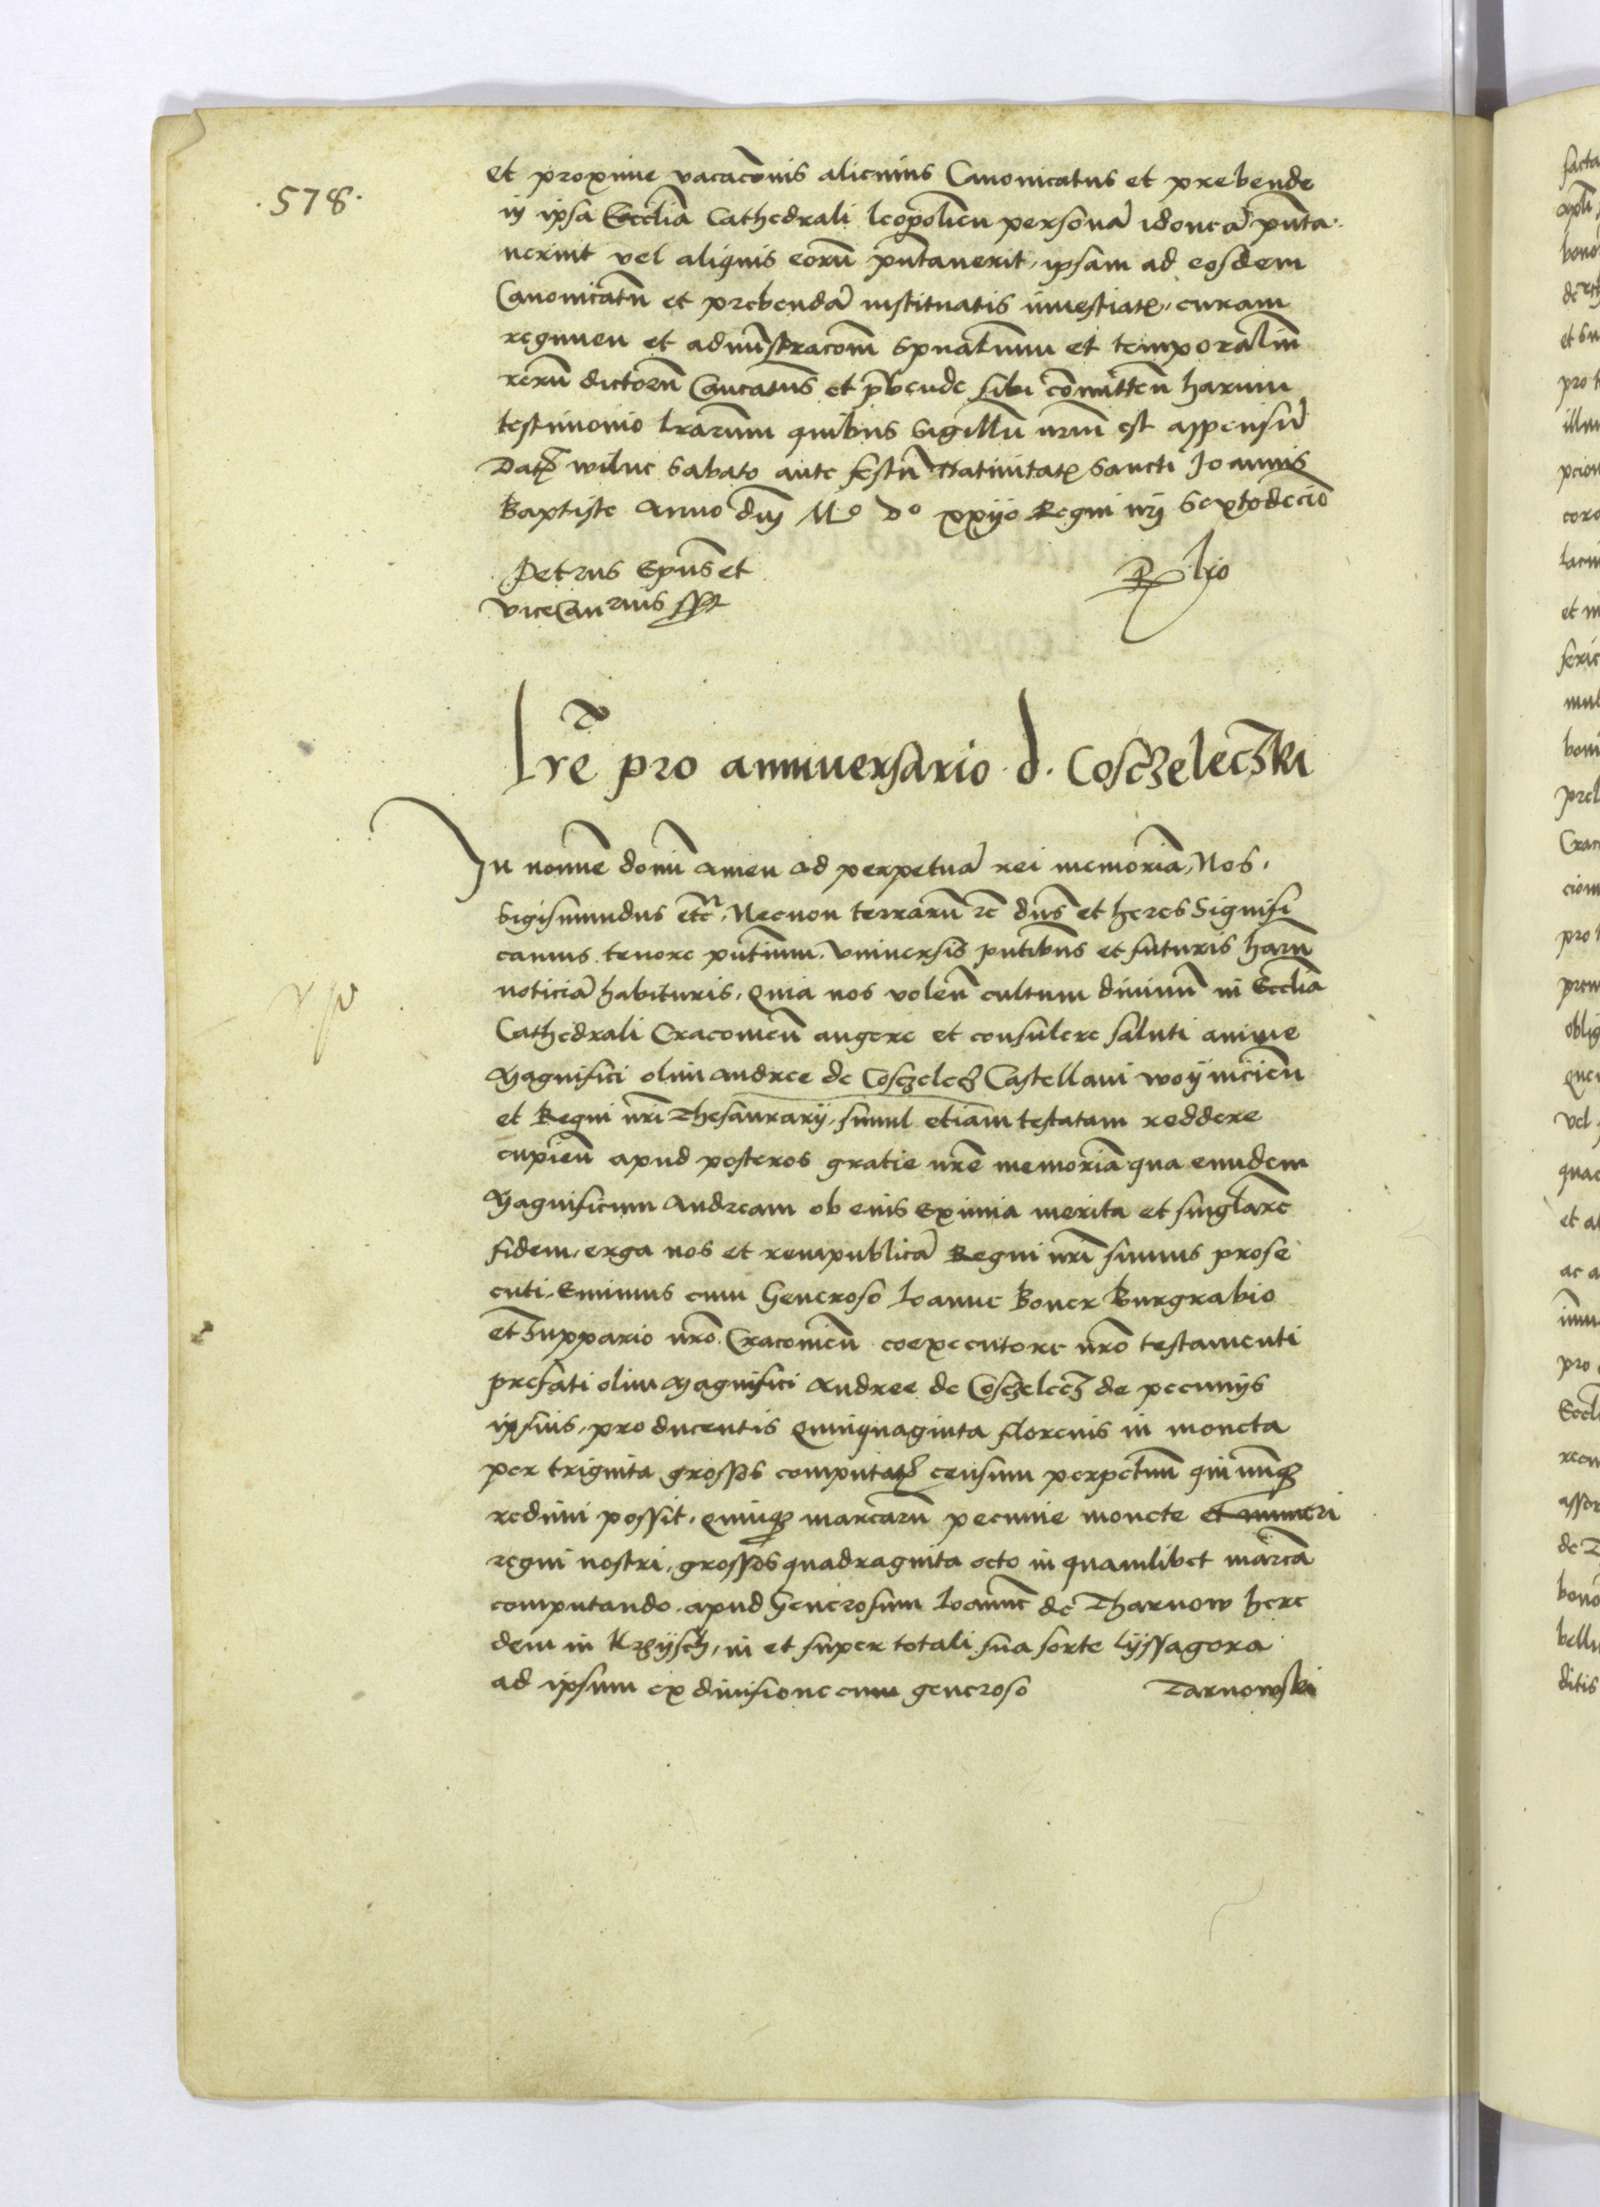 .578.
et proxime vacacōnis alicuius Canonicatus et prebende
in ipsa Ecclīa Cathedrali leopolien̄ personā idoneā pn̄ta-
uerint vel aliquis eorū pn̄tauerit, ipsam ad eosdem
Canonicatū et prebendā instituatis inuestiatꝭ, curam
regimen et admīstracōm spūalium et temporaliū
rerū dictorū Cancatus et p̄bende sibi cōmitten̄ harum
testimonio lrārum quibus Sigillū nr̄m est appensū
Datꝭ wilne Sabato ante festū Natiuitatꝭ Sancti Joannis
Baptiste Anno dn̄j Mº Dº xxijº Regni nrj Sextodecīo
Petrus Epūs et
viceCan̄rius sspt
Lr̄e pro anniuersario d. Cosczeleczki
In nomine domī amen ad perpetuā rei memoriā, Nos
Sigismundus etc̄, Necnon terrarū rc̄ dn̄s et heres Signifi
camus tenore pn̄tium, vniuersis pn̄tibus et futuris harū
noticiā habituris, Quia nos volen̄ cultum diuinū in Ecclīa
Cathedrali Cracouien̄ augere et consulere saluti anime
Magnifici olim Andree de Cosczelecz Castellani woynicien̄
et Regni nr̄i Thesaurarij, simul etiam testatam reddere
cupien̄ apud posteros gratie nr̄e memoriā qua eundem
Magnificum Andream ob eius Eximia merita et singlarē
fidem, erga nos et rempublicā Regni nr̄i sumus prose
cuti, Emimus cum Generoso Ioanne Boner Burgrabio
et Zuppario nr̄o Cracouien̄ coexecutore nr̄o testamenti
prefati olim Magnifici Andree de Cosczelecz de pecunijs
ipsius, pro ducentis Quinquaginta florenis in moneta
per triginta grossos computatꝭ censum perpetuū qui nūq̄
redimi possit, Quinq̄ marcarū pecunie monete et numeri
regni nostri, grossos quadraginta octo in quamlibet marcā
computando, apud Generosum Ioannē de Tharnow here
dem in Krzysch, in et super totali sua sorte lyssagora
ad ipsum ex diuisione cum generoso Tarnowski